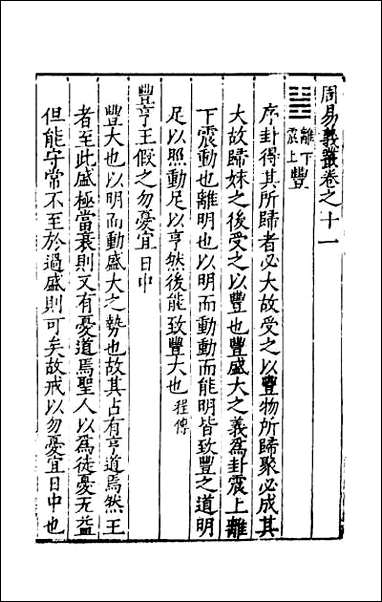 周易義叢卷之十一
離下震上豐
序卦得其所歸者必大故受之以豐物所歸聚必成其
大故歸妹之後受之以豐也豐盛大之義為卦震上離
下震動也離明也以明而動動而能明皆致豐之道明
足以照動足以亨然後能致豐大也程傳
豐亨王假之勿憂宜日中
豐大也以明而動盛大之勢也故其占有亨道焉然王
者至此盛極當衰則又有憂道焉聖人以為徒憂无益
但能守常不至於過盛則可矣故戒以勿憂宜日中也